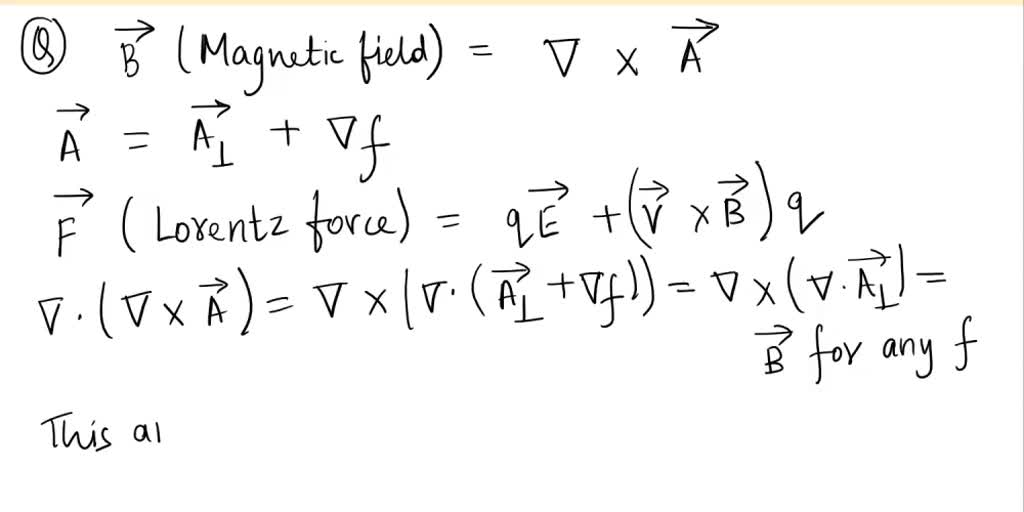 Q) B⃗ (Magnetic field) = ∇ × A⃗
A⃗ = A⃗⊥ + ∇f
F⃗ (Lorentz force) = qE⃗ + (V⃗ × B⃗) q
∇·(∇ × A⃗) = ∇ × (∇·(A⃗⊥ + ∇f)) = ∇ × (∇·A⃗⊥) =
B⃗ for any f
This al